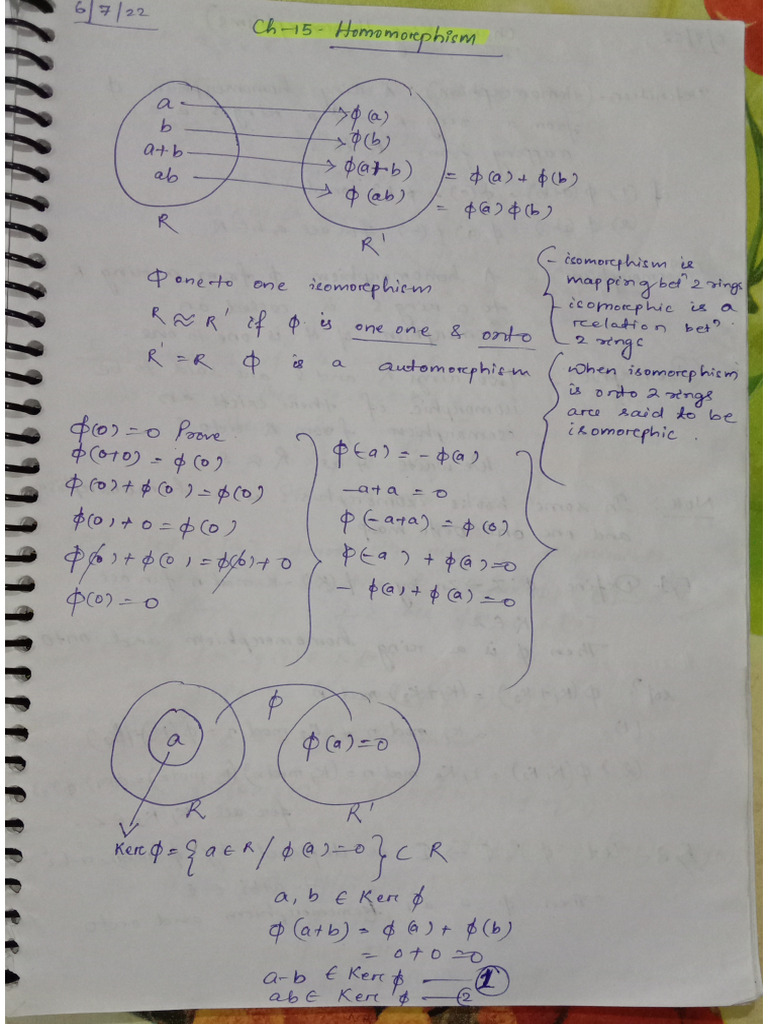 6/7/22
Ch-15- Homomorphism
a
b
a+b
ab
R
ϕ(a)
ϕ(b)
ϕ(a+b) = ϕ(a) + ϕ(b)
ϕ(ab) = ϕ(a)ϕ(b)
R'
ϕ one to one isomorphism
R ≈ R' if ϕ is one one & onto
R' = R ϕ is a automorphism
- isomorphism is
mapping betⁿ 2 rings
- isomorphic is a
relation betⁿ
2 rings
when isomorphism
is onto 2 rings
are said to be
isomorphic.
ϕ(0) = 0 Prove
ϕ(0+0) = ϕ(0)
ϕ(0) + ϕ(0) = ϕ(0)
ϕ(0) + 0 = ϕ(0)
ϕ(0) + ϕ(0) = ϕ(0) + 0
ϕ(0) = 0
ϕ(-a) = -ϕ(a)
-a+a = 0
ϕ(-a+a) = ϕ(0)
ϕ(-a) + ϕ(a) = 0
- ϕ(a) + ϕ(a) = 0
ϕ
a
ϕ(a) = 0
R
R'
Ker ϕ = {a ∈ R / ϕ(a) = 0} ⊂ R
a, b ∈ Ker ϕ
ϕ(a+b) = ϕ(a) + ϕ(b)
= 0 + 0 = 0
a-b ∈ Ker ϕ — 1
ab ∈ Ker ϕ — 2